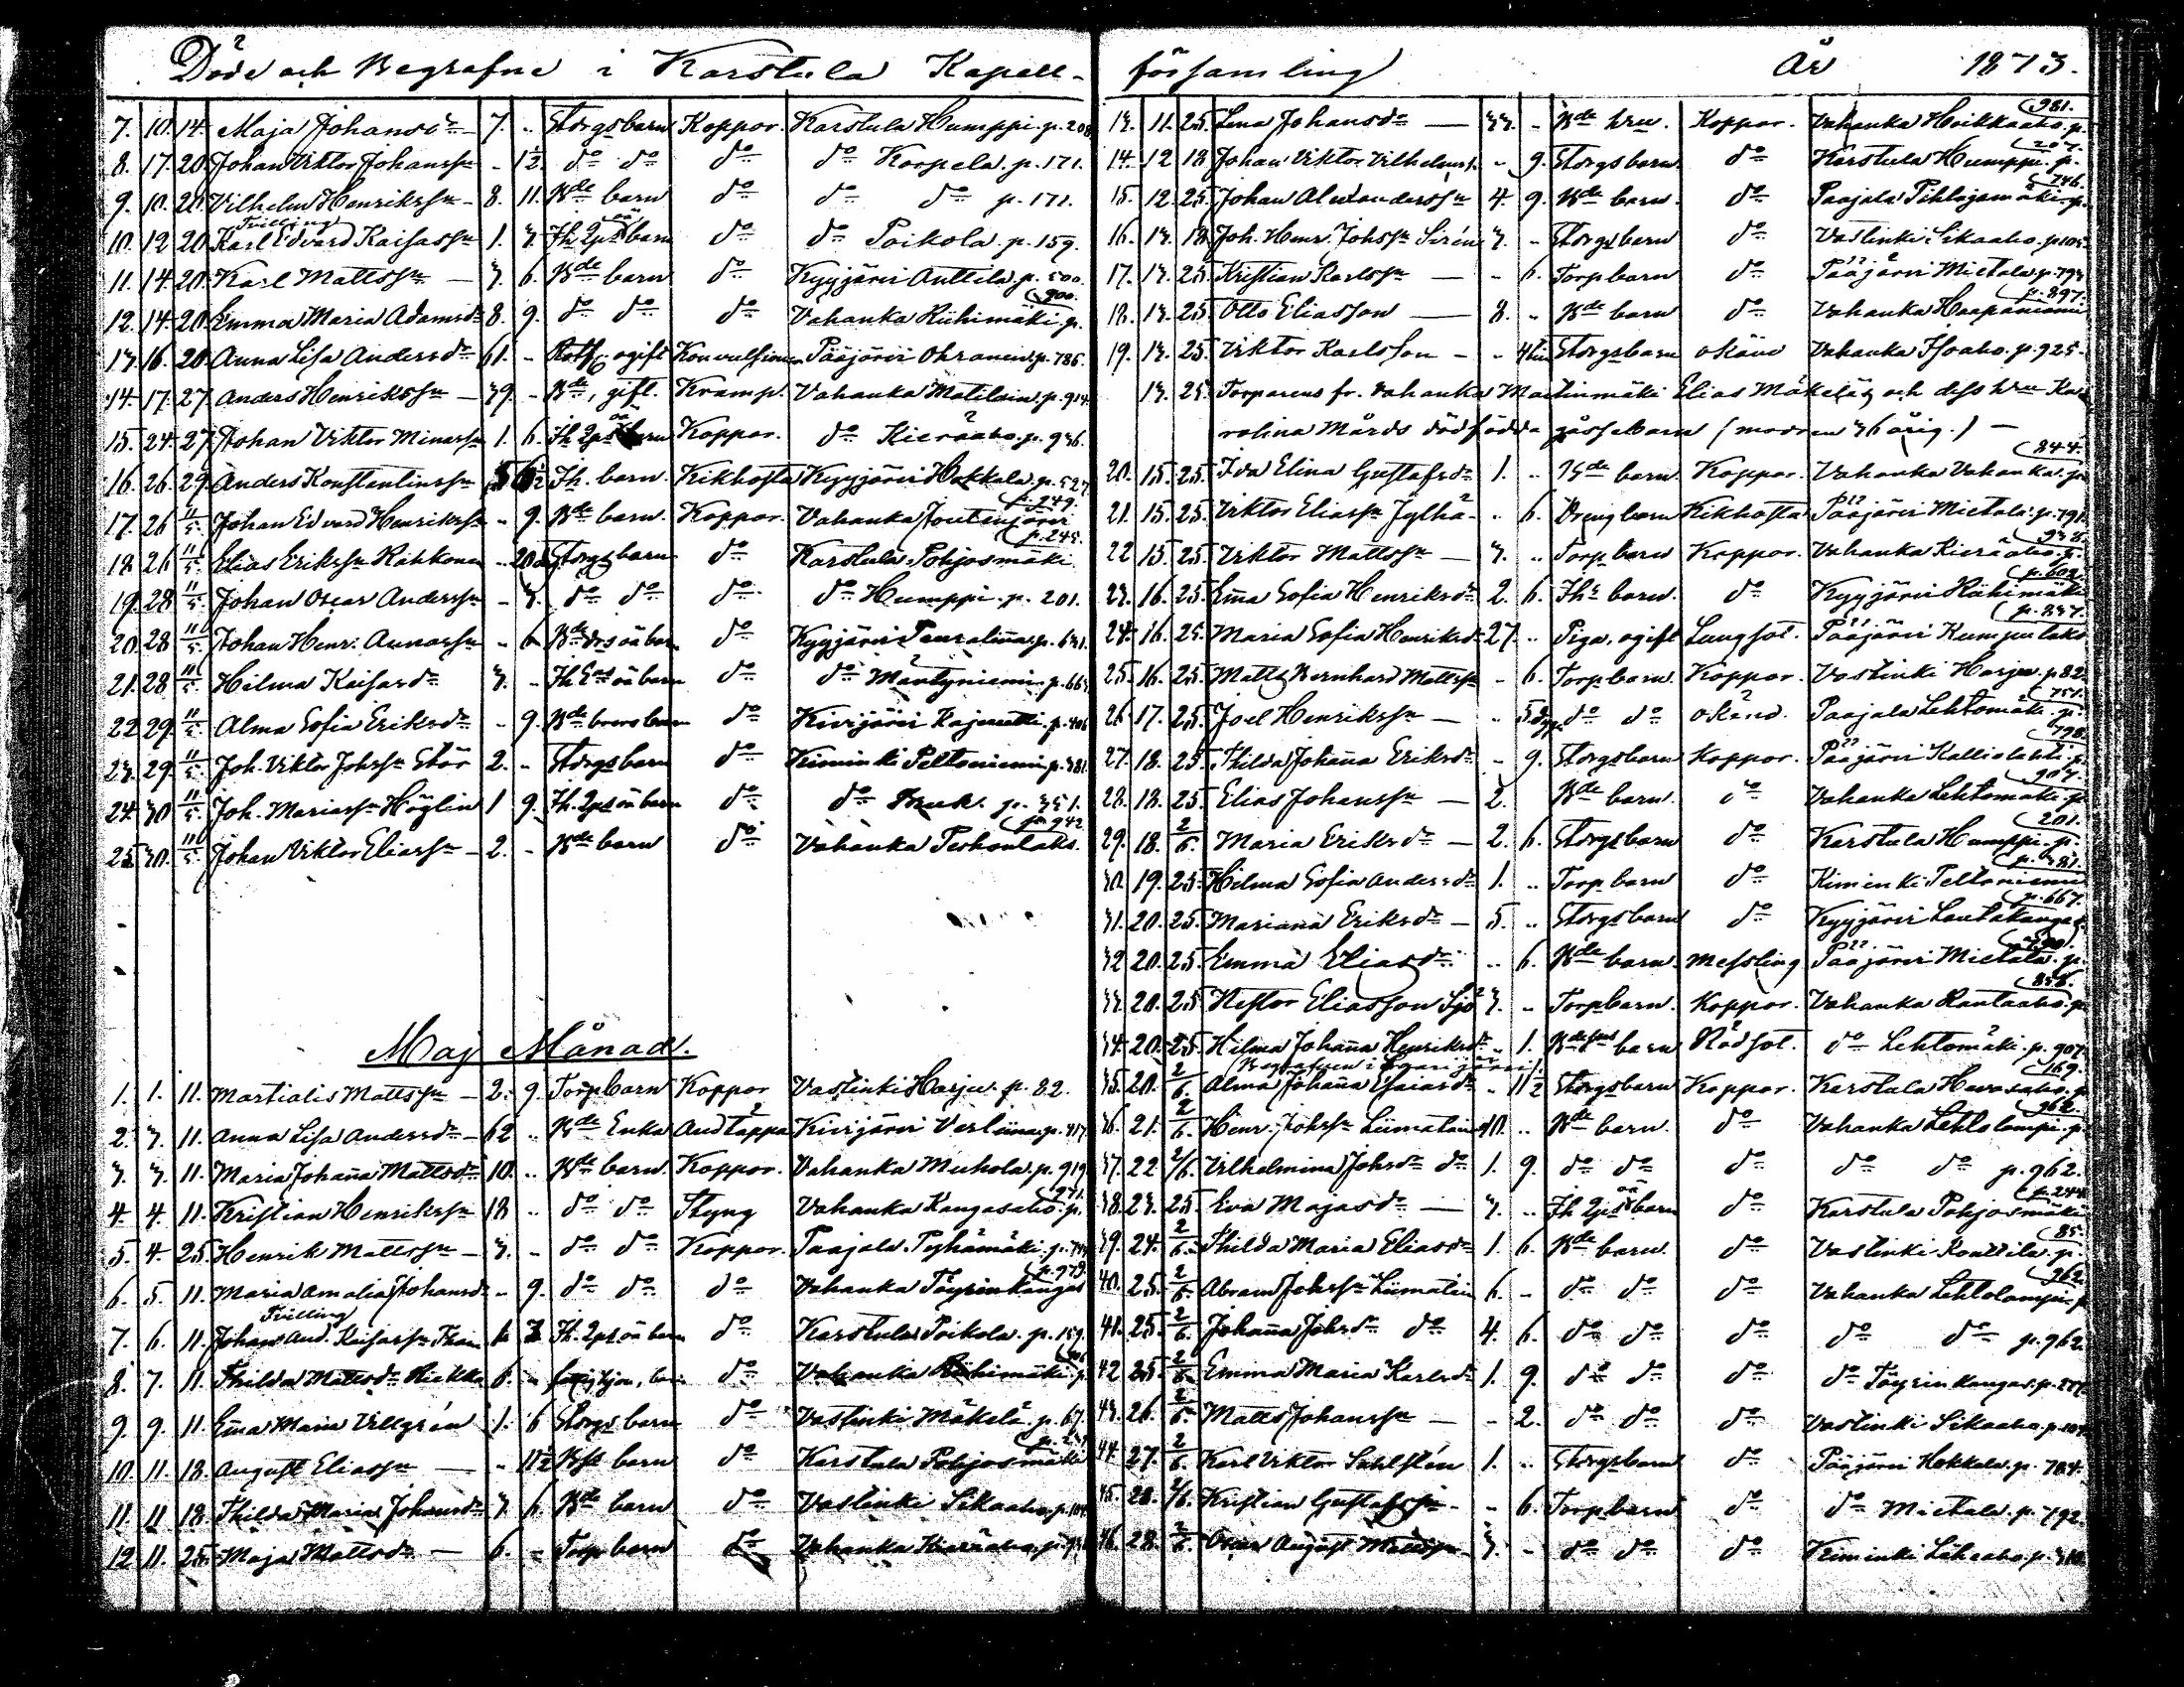 Döde och Begrafne i Karstula Kapell-
7. 10. 14. Maja Johansdr — 7. .. Storgsbarn Koppor. Karstula Humppi. p. 208
8. 17. 20. Johan Viktor Johansson - 1½. do do do do Korpela. p. 171.
9. 10. 20. Vilhelm Henriksson - 8. 11. Bde barn do do do p. 171.
Tvilling
10. 12 20. Karl Edvard Kaisasson 1. 3. Jh. 2ps oä barn do do Poikola. p. 159.
11. 14. 20. Karl Mattsson — 3. 6. Bde barn do Kyyjärvi Anttila. p. 500.
900.
12. 14. 20. Emma Maria Adamsdr 8. 9. do do do Vahanka Riihimäki. p.
13. 16. 20. Anna Lisa Andersdr 61. - ogift Konvulsioner Pääjärvi p. 786.
14. 17. 27 Anders Henriksson — 39. - Bde, gift. Kramp. Vahanka p. 914.
15. 24. 27. Johan Viktor Minasson 1. 6. Jh. 2ps oä barn Koppor. do Kieräaho. p. 936.
16. 26. 29. Anders Konstantinsson Jh. barn. Kikhosta Kyyjärvi Hokkala. p. 527.
p. 249.
17. 26 11/5. Johan Edvard Henriksson - 9. Bde barn. Koppor. Vahanka Joutenjärvi
p. 245.
18. 26 11/5. Elias Eriksson Kahkonen .. 20d Storgs barn do Karstula Pohjosmäki
19. 28 11/5. Johan Oscar Andersson - 3. do do do do Humppi. p. 201.
20. 28 11/5. Johan Henr. Annasson - 6 Bde drs oä barn do Kyyjärvi p. 631.
21. 28 11/5. Hilma Kaisasdr 3. - Jh. oä barn do do Mäntyniemi p. 663.
22. 29. 11/5. Alma Sofia Eriksdr - 9. Bde brors barn do Kivijärvi p. 406
23. 29. 11/5. Joh. Viktor Johsson Stör 2. - Storgs barn do Kiminki Peltoniemi p. 381.
24. 30 11/5. Joh. Mariasson Höglin 1 9. Jh. 2ps oä barn do do p. 351.
p. 942.
25. 30. 11/5. Johan Viktor Eliasson - 2. - Bde barn do Vahanka
Maj Månad.
1. 1. 11. Martialis Mattsson — 2. 9. Torp barn Koppor Vastinki Harju. p. 82.
2. 3. 11. Anna Lisa Andersdr — 62 .. Bde Enka Andtäppa Kivijärvi p. 417.
3. 3. 11. Maria Johana Mattsdr 10. .. Bde barn. Koppor. Vahanka Muhola. p. 919
271.
4. 4. 11. Kristian Henriksson 18 .. do do Styng Vahanka Kangasaho. p.
5. 4. 25. Henrik Mattsson — 3. - do do Koppor. Paajala p. 744
p. 979.
6. 5. 11. Maria Amalia Johansdr - 9. do do do Vahanka Töyrinkangas
Tvilling
7. 6. 11. Johan And. Kaisasson 1. 3 Jh. 2ps oä barn do Karstula Poikola. p. 159.
8. 7. 11. Thilda Mattsdr Riekko 6. - do Vahanka Riihimäki. p.
9. 9. 11. Ema Maria Villgrén 1. 6 Storgs barn do Vastinki Mäkelä. p. 67.
10. 11. 18. August Eliasson — - 11½ barn do Karstula Pohjosmäki
11. 11 18. Thilda Maria Johansdr 3. 6. Bde barn do Vastinki Sikaaho. p. 104.
12. 11. 25. Maja Mattsdr — 6. - Torp barn do Vahanka Kieräaho. p. 936
församling År 1873.
981.
13. 11. 25. Lena Johansdr — 33. - Bde hru. Koppor. Vahanka Hoikkaaho. p.
207.
14. 12 18. Johan Viktor Vilhelmss. - 9. Storgs barn. do Karstula Humppi. p.
746.
15. 12. 25. Johan Alexandersson 4. 9. Bde barn. do Paajala Pihlajamäki. p.
16. 13. 18. Joh. Henr. Johsson Sirén 3. - Storgs barn do Vastinki Sikaaho. p. 105.
17. 13. 25. Kristian Karlsson — - 6. Torp barn do Pääjärvi Mietala. p. 793
p. 897.
18. 13. 25. Otto Eliasson — 8. - Bde barn do Vahanka Haapaniemi
19. 13. 25. Viktor Karlsson - - 4 tim Storgs barn okänd Vahanka Isoaho. p. 925.
13. 25. Torparens fr. Vahanka Martinmäki Elias Mäkeläs och dess hru Ka-
rolina Mårds dödfödda gossebarn (modren 36 årig.) —
244.
20. 15. 25. Ida Elina Gustafsdr 1. .. Bde barn. Koppor. Vahanka Vahanka. p.
21. 15. 25. Viktor Eliasson Jylhä - .. 6. Dreng barn Kikhosta Pääjärvi Mietala. p. 791.
938.
22 15. 25. Viktor Mattsson — 3. .. Torp barn Koppor. Vahanka Kieräaho. p.
p. 602.
23. 16. 25. Ema Sofia Henriksdr 2. 6. Jhs barn. do Kyyjärvi Riihimäki
p. 837.
24. 16. 25. Maria Sofia Henriksdr 27. .. Piga, ogift Lungsot. Pääjärvi Kumpulaks
25. 16. 25. Matts Bernhard Mattsson - 6. Torp barn. Koppor. Vastinki Harju. p. 82.
751.
26. 17. 25. Joel Henriksson — .. do do okänd. Paajala Lehtomäki. p.
798.
27. 18. 25. Thilda Johana Eriksdr - 9. Storgs barn Koppor. Pääjärvi Kalliolahti. p.
907.
28. 18. 25. Elias Johansson — 2. Bde barn. do Vahanka Lehtomäki. p.
201.
29. 18. 2/6. Maria Eriksdr — 2. 6. Storgs barn do Karstula Humppi. p.
p. 381.
30. 19. 25. Hilma Sofia Andersdr 1. .. Torp barn do Kiminki Peltoniemi
p. 667.
31. 20. 25. Mariana Eriksdr — 5. .. Storgs barn do Kyyjärvi Lautakangas
32 20. 25. Emma Eliasdr .. 6. Bde barn. Messling Pääjärvi Mietala. p.
858.
33 20. 25 Nestor Eliasson Sjö 3. - Torp barn. Koppor. Vahanka Rantaaho. p
34. 20. 25. Hilma Johana Henriksdr - 1. barn Rödsot. do Lehtomäki. p. 907.
169.
35. 20. 2/6. Alma Johana Esaiasdr - 11½ Storgs barn Koppor. Karstula p.
962.
36. 21. 2/6. Henr. Johsson Liimatain 10. .. Bde barn. do Vahanka Lehtolampi. p.
37. 22 2/6. Vilhelmina Johsdr do 1. 9. do do do do do p. 962.
p. 244
38. 23. 25. Eva Majasdr — 3. .. Jh 2ps oä barn do Karstula Pohjosmäki
85.
39. 24. 2/6. Thilda Maria Eliasdr 1. 6. Bde barn. do Vastinki Konttila. p.
962.
40. 25. 2/6. Abram Johsson Liimatain 6. - do do do Vahanka Lehtolampi. p
41. 25. 2/6. Johana Johsdr do 4. 6. do do do do do p. 962.
42 25. 2/6. Emma Maria Karlsdr 1. 9. do do do do Töyrinkangas. p. 277.
43. 26. 2/6. Matts Johansson — - 2. do do do Vastinki Sikaaho. p. 104.
44. 27. 2/6. Karl Viktor Sahlstén 1. .. Storgs barn do Pääjärvi Hokkala. p. 784.
45. 28. 2/6. Kristian Gustafsson - - 6. Torp barn do do Mietala. p. 792.
46. 28. 2/6. Oscar August Mattsson 3. - do do do Kiminki p. 310.